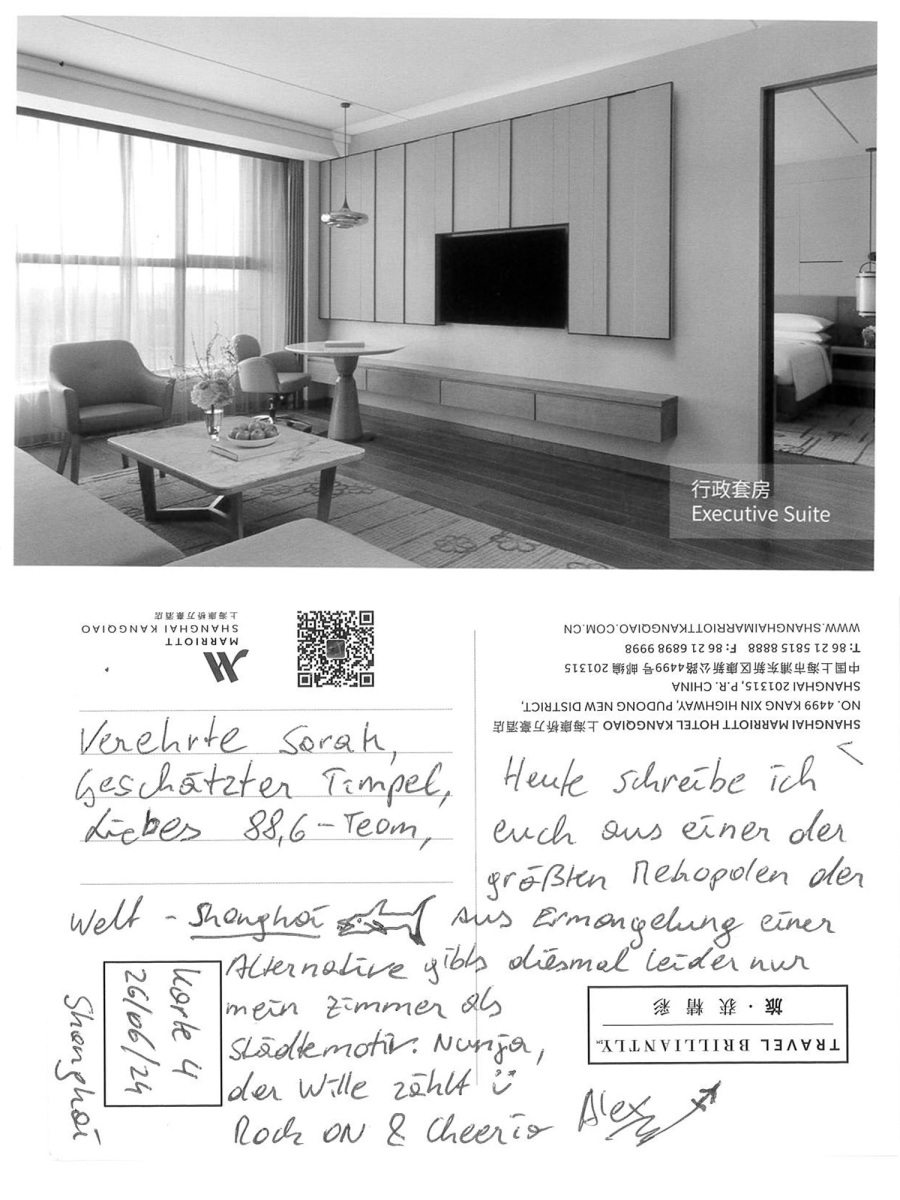 行政套房
Executive Suite
上海康桥万豪酒店
SHANGHAI KANGQIAO
MARRIOTT
SHANGHAI MARRIOTT HOTEL KANGQIAO 上海康桥万豪酒店
NO. 4499 KANG XIN HIGHWAY, PUDONG NEW DISTRICT,
SHANGHAI 201315, P.R. CHINA
中国上海市浦东新区康新公路4499号 邮编 201315
T: 86 21 5815 8888 F: 86 21 6898 9998
WWW.SHANGHAIMARRIOTTKANGQIAO.COM.CN
Verehrte Sarah,
Geschätzter Timpel,
Liebes 88,6-Team,
Heute schreibe ich
euch aus einer der
größten Metropolen der
Welt - Shanghai Aus Ermangelung einer
Alternative gibts diesmal leider nur
mein Zimmer als
Städtemotiv. Nunja,
der Wille zählt
Rock ON & Cheerio Alex
Karte 4
26/06/24
Shanghai
旅·获精彩
TRAVEL BRILLIANTLY